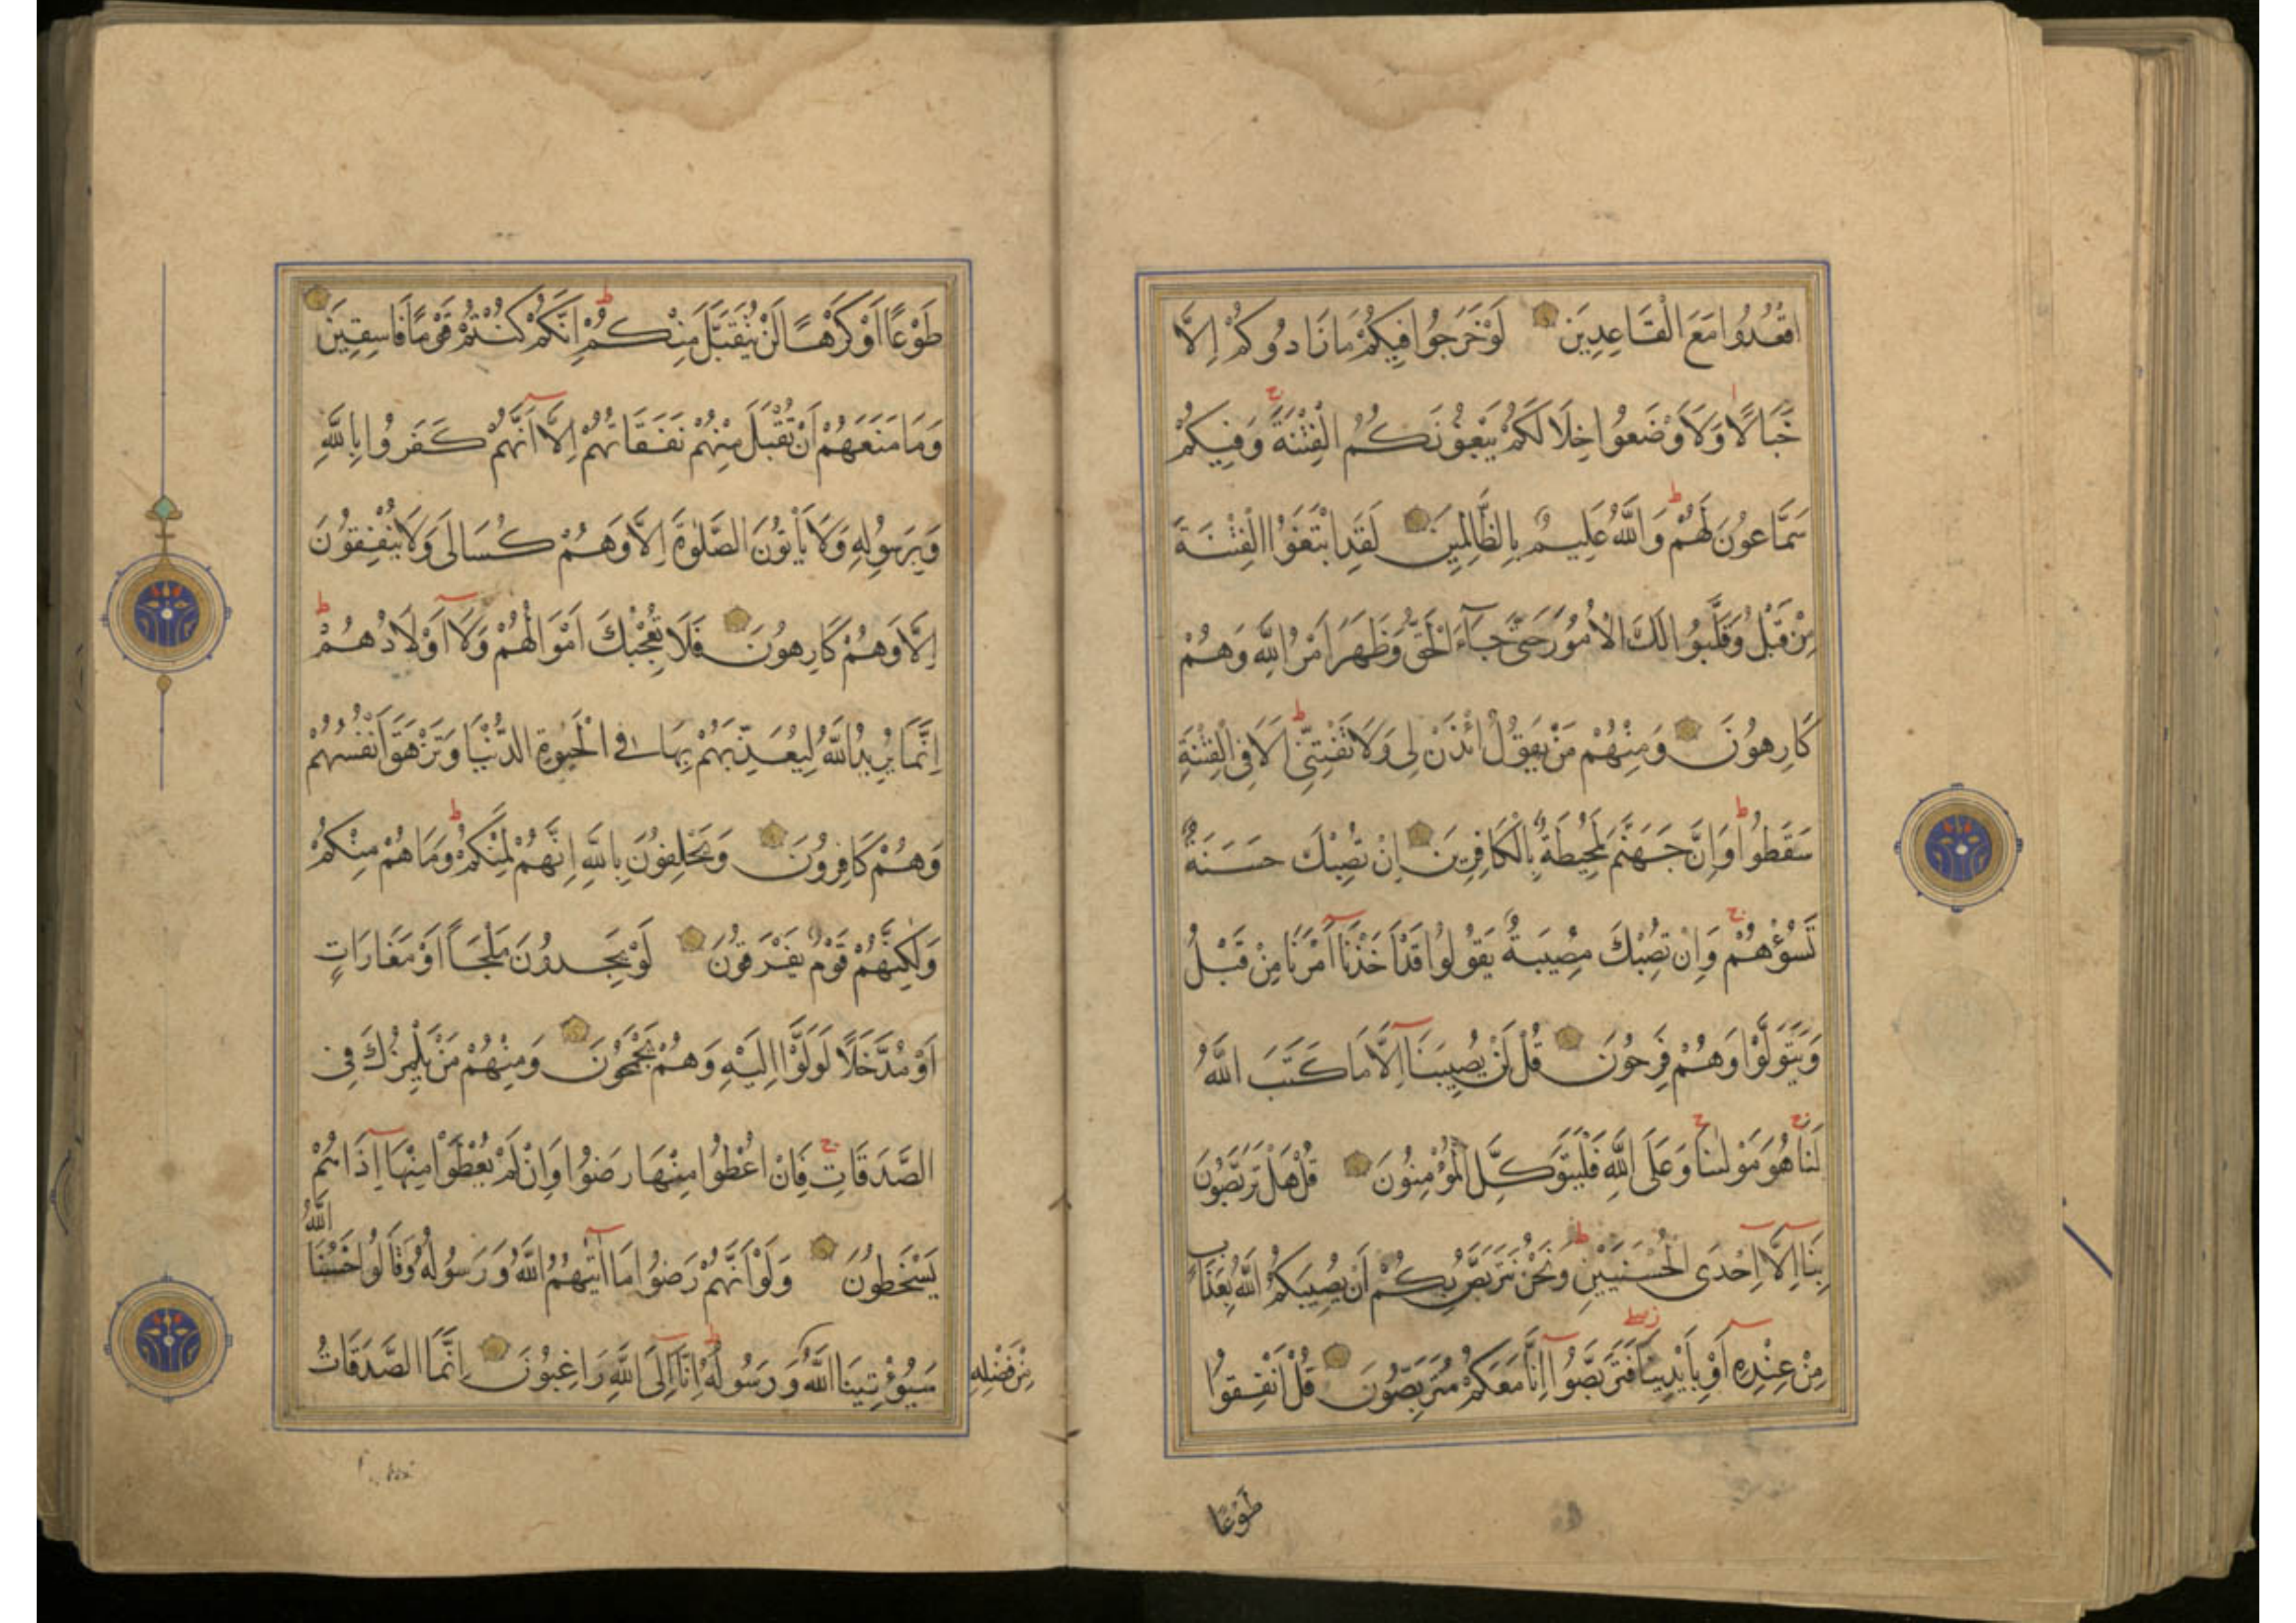 اقْعُدُوا مَعَ الْقَاعِدِينَ لَوْ خَرَجُوا فِيكُمْ مَا زَادُوكُمْ اِلَّا
خَبَالًا وَلَاَوْضَعُوا خِلَالَكُمْ يَبْغُونَكُمُ الْفِتْنَةَ وَفِيكُمْ
سَمَّاعُونَ لَهُمْ وَاللَّهُ عَلِيمٌ بِالظَّالِمِينَ لَقَدِ ابْتَغَوُا الْفِتْنَةَ
مِنْ قَبْلُ وَقَلَّبُوا لَكَ الْاُمُورَ حَتَّى جَآءَ الْحَقُّ وَظَهَرَ اَمْرُ اللَّهِ وَهُمْ
كَارِهُونَ وَمِنْهُمْ مَنْ يَقُولُ ائْذَنْ لِى وَلَا تَفْتِنِّى اَلَا فِى الْفِتْنَةِ
سَقَطُوا وَاِنَّ جَهَنَّمَ لَمُحِيطَةٌ بِالْكَافِرِينَ اِنْ تُصِبْكَ حَسَنَةٌ
تَسُؤْهُمْ وَاِنْ تُصِبْكَ مُصِيبَةٌ يَقُولُوا قَدْ اَخَذْنَا اَمْرَنَا مِنْ قَبْلُ
وَيَتَوَلَّوْا وَهُمْ فَرِحُونَ قُلْ لَنْ يُصِيبَنَا اِلَّا مَا كَتَبَ اللَّهُ
لَنَا هُوَ مَوْلٰينَا وَعَلَى اللَّهِ فَلْيَتَوَكَّلِ الْمُؤْمِنُونَ قُلْ هَلْ تَرَبَّصُونَ
بِنَا اِلَّا اِحْدَى الْحُسْنَيَيْنِ وَنَحْنُ نَتَرَبَّصُ بِكُمْ اَنْ يُصِيبَكُمُ اللَّهُ بِعَذَابٍ
مِنْ عِنْدِهِ اَوْ بِاَيْدِينَا فَتَرَبَّصُوا اِنَّا مَعَكُمْ مُتَرَبِّصُونَ قُلْ اَنْفِقُوا
طَوْعًا
طَوْعًا اَوْ كَرْهًا لَنْ يُتَقَبَّلَ مِنْكُمْ اِنَّكُمْ كُنْتُمْ قَوْمًا فَاسِقِينَ
وَمَا مَنَعَهُمْ اَنْ تُقْبَلَ مِنْهُمْ نَفَقَاتُهُمْ اِلَّا اَنَّهُمْ كَفَرُوا بِاللَّهِ
وَبِرَسُولِهِ وَلَا يَأْتُونَ الصَّلٰوةَ اِلَّا وَهُمْ كُسَالَى وَلَا يُنْفِقُونَ
اِلَّا وَهُمْ كَارِهُونَ فَلَا تُعْجِبْكَ اَمْوَالُهُمْ وَلَا اَوْلَادُهُمْ
اِنَّمَا يُرِيدُ اللَّهُ لِيُعَذِّبَهُمْ بِهَا فِى الْحَيٰوةِ الدُّنْيَا وَتَزْهَقَ اَنْفُسُهُمْ
وَهُمْ كَافِرُونَ وَيَحْلِفُونَ بِاللَّهِ اِنَّهُمْ لَمِنْكُمْ وَمَا هُمْ مِنْكُمْ
وَلٰكِنَّهُمْ قَوْمٌ يَفْرَقُونَ لَوْ يَجِدُونَ مَلْجَأً اَوْ مَغَارَاتٍ
اَوْ مُدَّخَلًا لَوَلَّوْا اِلَيْهِ وَهُمْ يَجْمَحُونَ وَمِنْهُمْ مَنْ يَلْمِزُكَ فِى
الصَّدَقَاتِ فَاِنْ اُعْطُوا مِنْهَا رَضُوا وَاِنْ لَمْ يُعْطَوْا مِنْهَا اِذَا هُمْ
يَسْخَطُونَ وَلَوْ اَنَّهُمْ رَضُوا مَا اٰتٰيهُمُ اللَّهُ وَرَسُولُهُ وَقَالُوا حَسْبُنَا اللَّهُ
سَيُؤْتِينَا اللَّهُ مِنْ فَضْلِهِ وَرَسُولُهُ اِنَّا اِلَى اللَّهِ رَاغِبُونَ اِنَّمَا الصَّدَقَاتُ